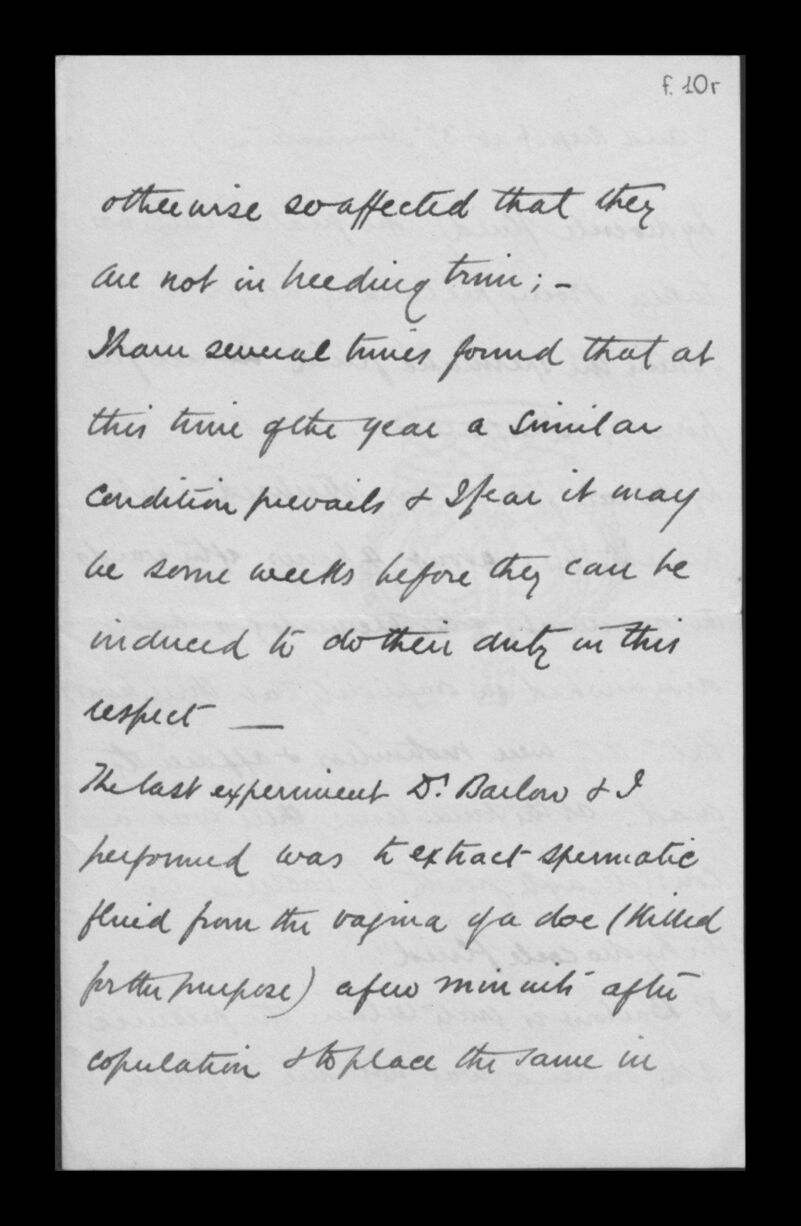 f. 10r
otherwise so affected that they
are not in breeding trim; –
I have several times found that at
this time of the year a similar
condition prevails & I fear it may
be some weeks before they can be
induced to do their duty in this
respect —
The last experiment Dr. Barlow & I
performed was to extract spermatic
fluid from the vagina of a doe (killed
for the purpose) a few minutes after
copulation & to place the same in